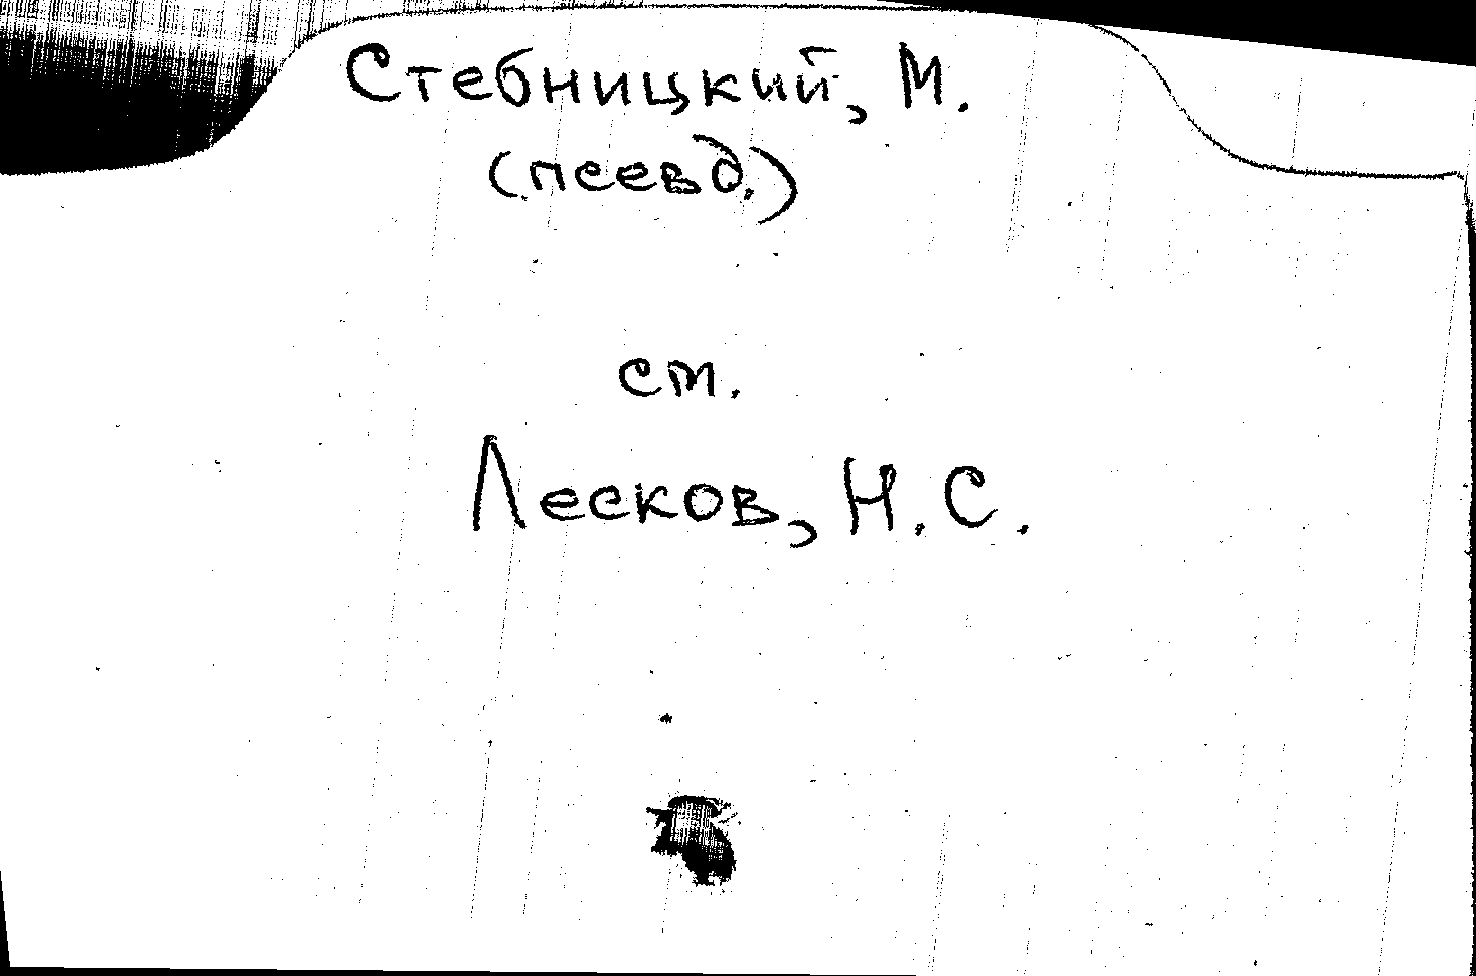 Стебницкий, М.
(псевд.)
см.
Лесков, Н. С.